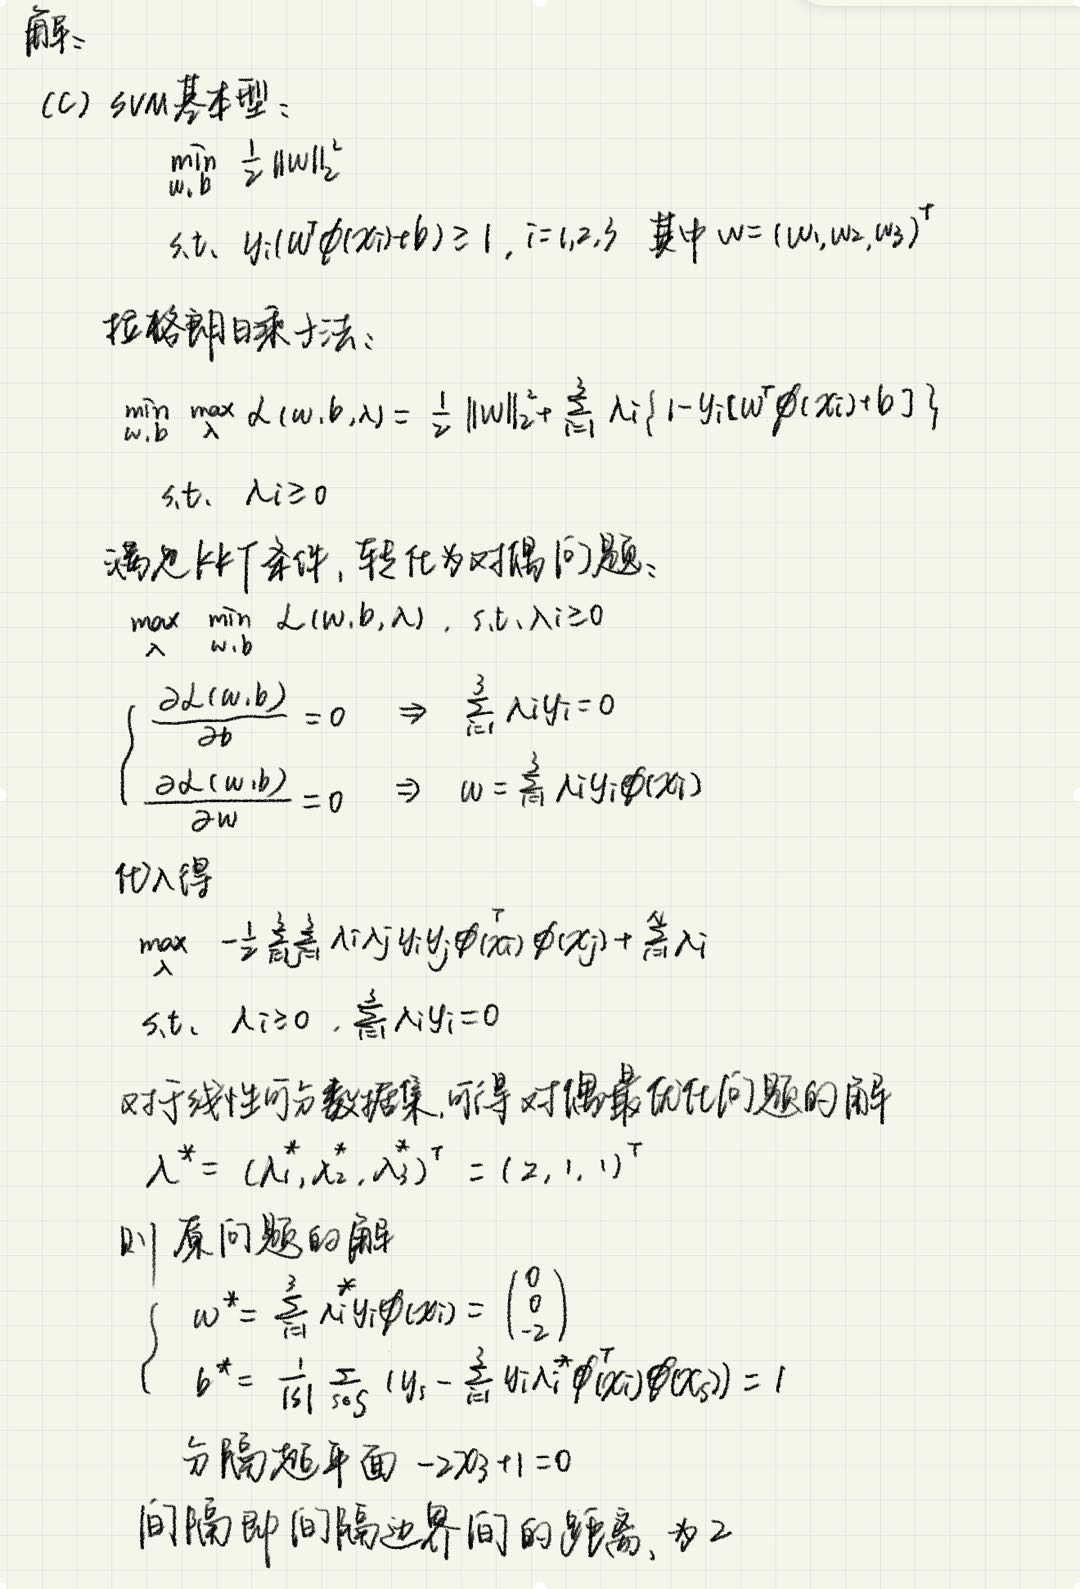 解:
(C) SVM基本型:
min 1/2 ||w||₂²
w,b
s.t. yi(wᵀϕ(xi)+b) ≥ 1, i=1,2,3 其中 w=(w1,w2,w3)ᵀ
拉格朗日乘子法:
min max L(w,b,λ) = 1/2 ||w||₂² + Σ(i=1→3) λi{1-yi[wᵀϕ(xi)+b]}
w,b λ
s.t. λi≥0
满足KKT条件,转化为对偶问题:
max min L(w,b,λ), s.t. λi≥0
λ w,b
∂L(w,b)/∂b = 0 ⇒ Σ(i=1→3) λiyi=0
∂L(w,b)/∂w = 0 ⇒ w = Σ(i=1→3) λiyiϕ(xi)
代入得
max -1/2 Σ(i=1→3) Σ(j=1→3) λiλjyiyjϕ(xi)ᵀϕ(xj) + Σ(i=1→N) λi
λ
s.t. λi≥0, Σ(i=1→3) λiyi=0
对于线性可分数据集,可得对偶最优化问题的解
λ* = (λ1*, λ2*, λ3*)ᵀ = (2, 1, 1)ᵀ
则原问题的解
w* = Σ(i=1→3) λi*yiϕ(xi) = (0 0 -2)
b* = 1/|S| Σ(s∈S) (ys - Σ(i=1→3) yiλi*ϕᵀ(xi)ϕ(xs)) = 1
分隔超平面 -2x3+1=0
间隔即间隔边界间的距离,为2